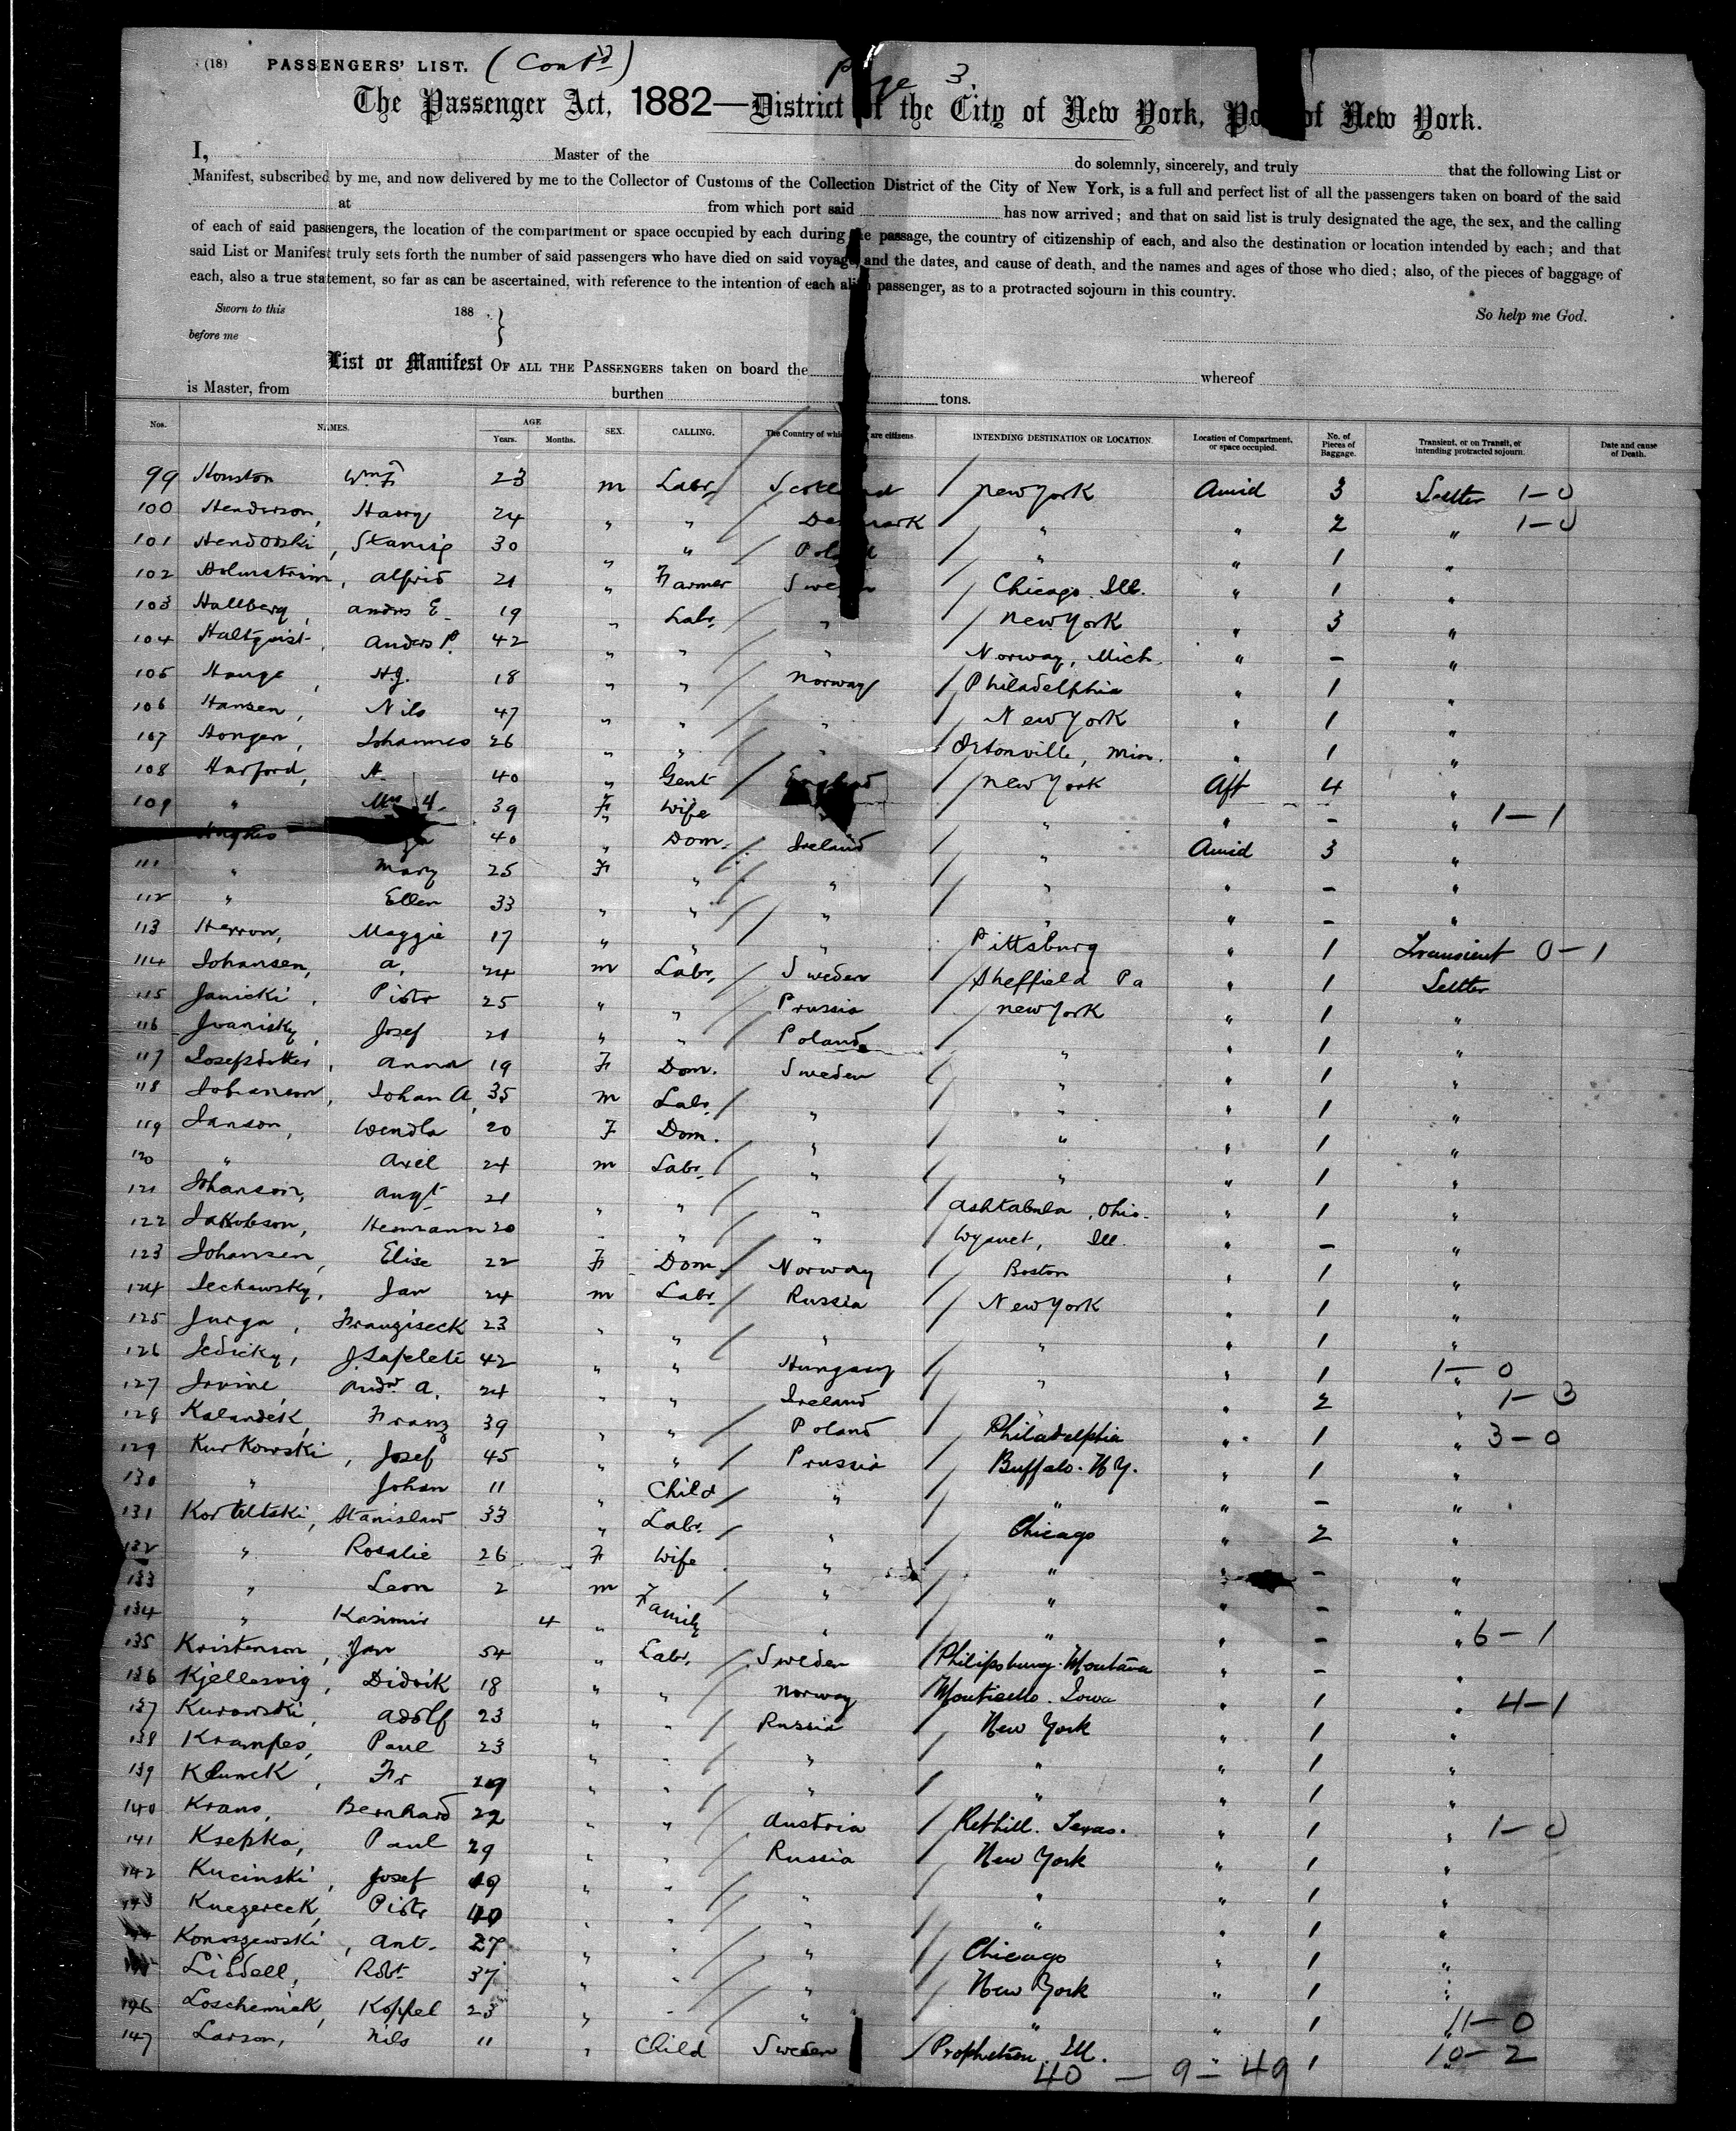 (18) PASSENGERS' LIST. (Cont'd) Page 3.
The Passenger Act, 1882—District of the City of New York, Port of New York.
I, Master of the do solemnly, sincerely, and truly that the following List or
Manifest, subscribed by me, and now delivered by me to the Collector of Customs of the Collection District of the City of New York, is a full and perfect list of all the passengers taken on board of the said
at from which port said has now arrived; and that on said list is truly designated the age, the sex, and the calling
of each of said passengers, the location of the compartment or space occupied by each during the passage, the country of citizenship of each, and also the destination or location intended by each; and that
said List or Manifest truly sets forth the number of said passengers who have died on said voyage, and the dates, and cause of death, and the names and ages of those who died; also, of the pieces of baggage of
each, also a true statement, so far as can be ascertained, with reference to the intention of each alien passenger, as to a protracted sojourn in this country.
Sworn to this 188 . } So help me God.
before me
List or Manifest OF ALL THE PASSENGERS taken on board the whereof
is Master, from burthen tons.
Nos. NAMES. AGE Years. Months. SEX. CALLING. The Country of which are citizens INTENDING DESTINATION OR LOCATION. Location of Compartment, or space occupied. No. of Pieces of Baggage. Transient, or on Transit, or intending protracted sojourn. Date and cause of Death.
99 Houston Wm F 23 m Labr. Scotland New York Amid 3 Settler 1-0
100 Henderson, Harry 24 " " Denmark " " 2 " 1-0
101 30 " " Poland " " 1 "
102 Alfrid 21 " Farmer Sweden Chicago Ill. " 1 "
103 Hallberg, Andrs E. 19 " Labr. " New York " 3 "
104 Haltquist, Anders P. 42 " " " Norway, Mich. " - "
105 Hauge, H.J. 18 " " Norway Philadelphia " 1 "
106 Hansen, Nils 47 " " " New York " 1 "
107 Hongen, Johannes 26 " " " Ortonville, Min. " 1 "
108 Harford, H. 40 " Gent England New York Aft 4 "
109 " Mrs H. 39 F Wife " " - " 1-1
Hughes 40 " Dom. Ireland " Amid 3 "
111 " Mary 25 F " " " " - "
112 " Ellen 33 " " " " " - "
113 Herron, Maggie 17 " " " Pittsburg " 1 Transient 0-1
114 Johansen, A. 24 m Labr. Sweden Sheffield Pa " 1 Settler
115 Janicki, Piotr 25 " " Prussia New York " 1 "
116 Josef 21 " " Poland " " 1 "
117 Josefsdotter, Anna 19 F Dom. Sweden " " 1 "
118 Johanson, Johan A. 35 m Labr. " " " 1 "
119 Janson, Wendla 20 F Dom. " " " 1 "
120 " Axel 24 m Labr. " " " 1 "
121 Johanson, Augt 21 " " " Ashtabula, Ohio. " 1 "
122 Jakobson, Hermann 20 " " " Wyanet, Ill. " - "
123 Johansen, Elise 22 F Dom. Norway Boston " 1 "
124 Jechowsky, Jan 24 m Labr. Russia New York " 1 "
125 Jurga, Franziseck 23 " " " " " 1 "
126 Jedicky, 42 " " Hungary " " 1 " 1-0
127 Irvine, Andw A. 24 " " Ireland " " 2 " 1-3
128 Kalandek, Franz 39 " " Poland Philadelphia " 1 " 3-0
129 Kurkowski, Josef 45 " " Prussia Buffalo. N.Y. " 1 "
130 " Johan 11 " Child " " " - "
131 Stanislaw 33 " Labr. " Chicago " 2 "
132 " Rosalie 26 F Wife " " " - "
133 " Leon 2 m Family " " " - "
134 " Kasimir 4 " " " " - " 6-1
135 Kristenson, Jan 54 " Labr. Sweden Philipsburg. Montana " - "
136 Kjellesvig, Didrik 18 " " Norway Monticello. Iowa " 1 " 4-1
137 Kurowski, Adolf 23 " " Russia New York " 1 "
138 Krampes, Paul 23 " " " " " 1 "
139 Klimek, Fr 29 " " " " " 1 "
140 Kraus, Bernhard 22 " " Austria Texas. " 1 " 1-0
141 Ksepka, Paul 29 " " Russia New York " 1 "
142 Kucinski, Josef 19 " " " " " 1 "
143 Piotr 40 " " " " " 1 "
Konoszewski, Ant. 27 " " " Chicago " 1 "
Liddell, Robt 37 " " " New York " 1 "
146 Loscheniak, Koppel 23 " " " " " 1 " 11-0
147 Larson, Nils 11 " Child Sweden Prophetson Ill. " 1 " 10-2
40 - 9 - 49